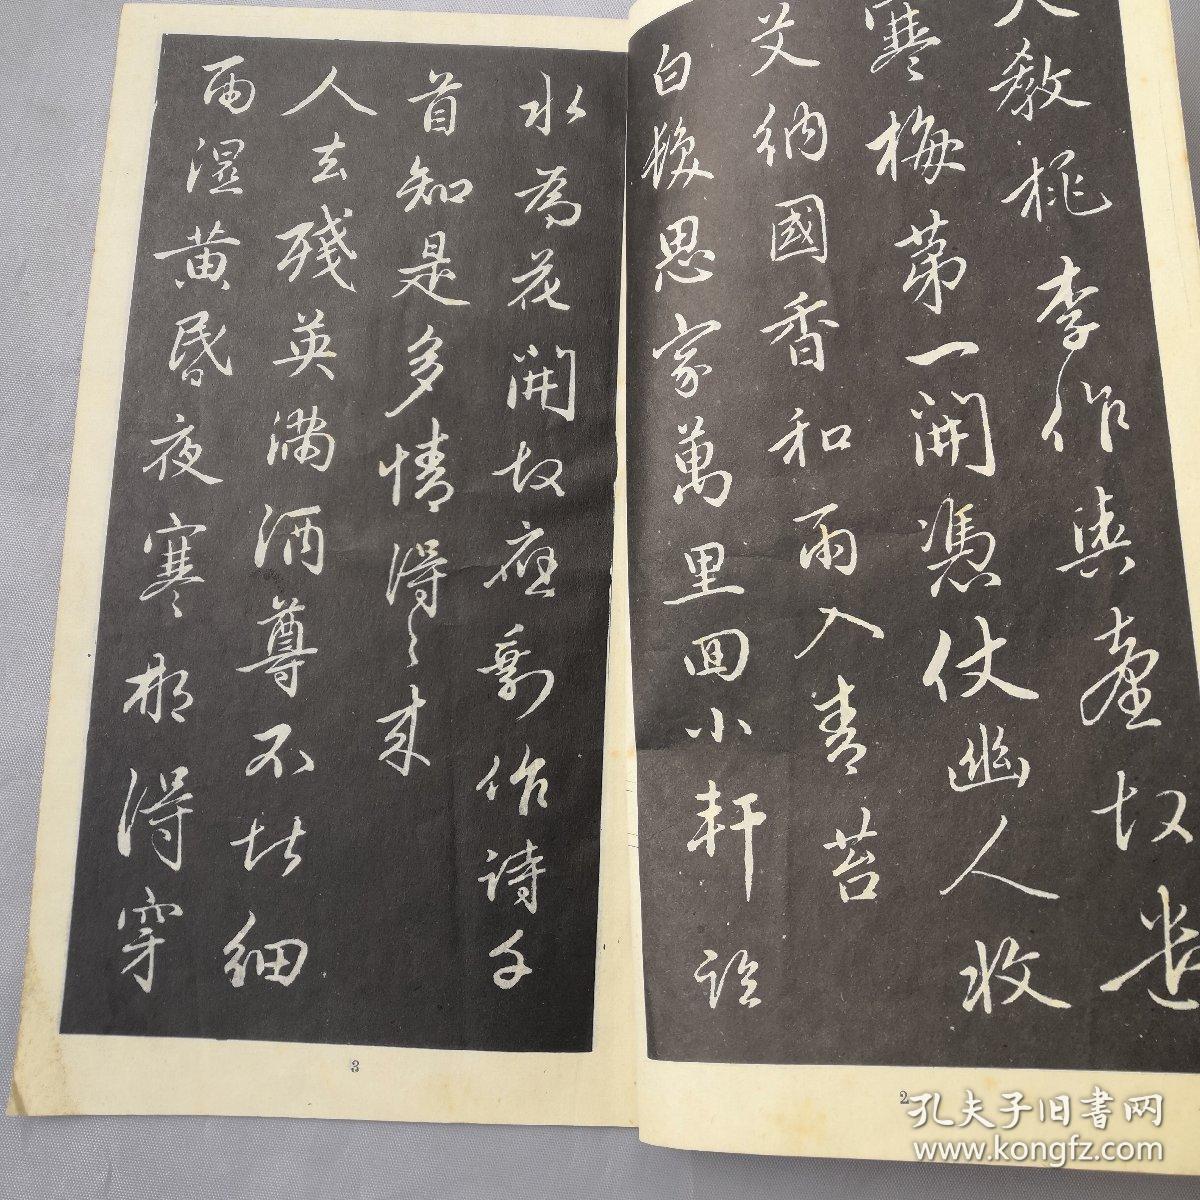 天教桃李作與臺故遣
寒梅第一開憑仗幽人收
艾納國香和雨入青苔
白髮思家萬里回小軒臨
水為花開故應剩作詩千
首知是多情得々來
人去殘英滿酒尊不堪細
雨濕黃昏夜寒那得穿
3
2
孔夫子旧书网
www.kongfz.com